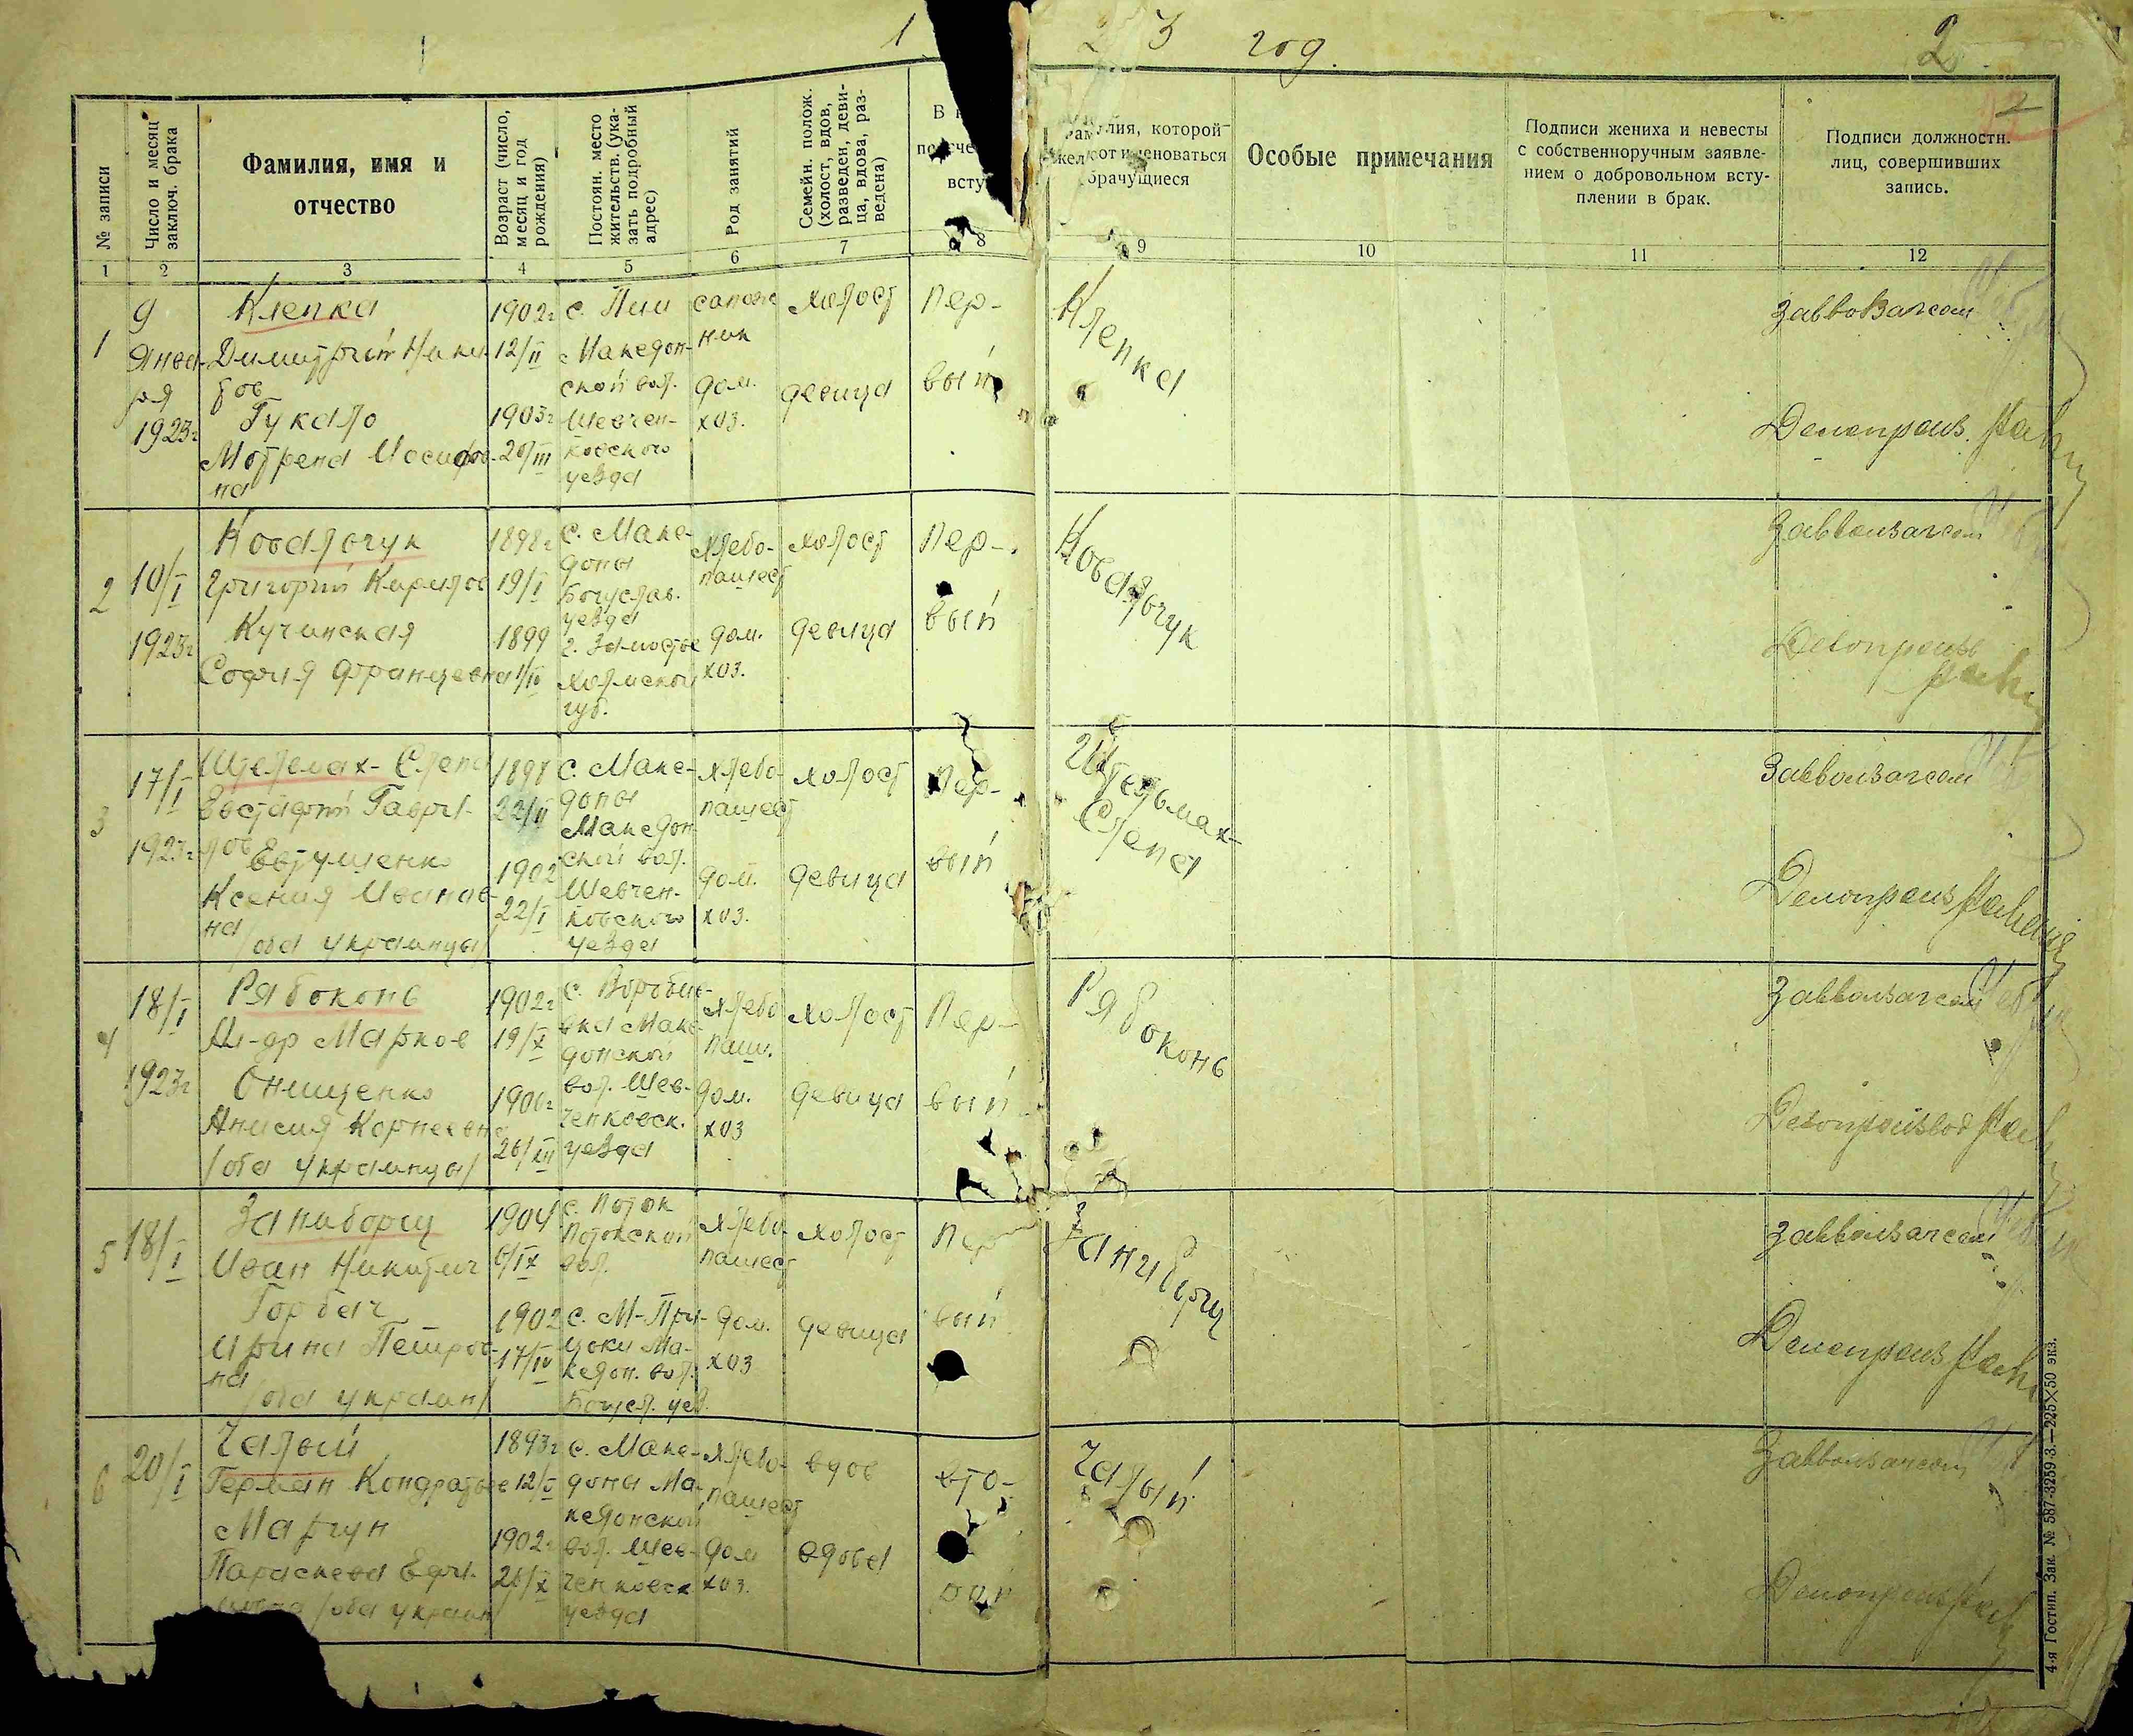 1 2 3 год. 2
2
№ записи
Число и месяц
заключ. брака
Фамилия, имя и
отчество
Возраст (число,
месяц и год
рождения)
Постоян. место
жительств. (ука-
зать подробный
адрес)
Род занятий
Семейн. полож.
(холост, вдов,
разведен, деви-
ца, вдова, раз-
ведена)
В
всту
амилия, которой
желают именоваться
брачущиеся
Особые примечания
Подписи жениха и невесты
с собственноручным заявле-
нием о добровольном всту-
плении в брак.
Подписи должностн.
лиц, совершивших
запись.
1 2 3 4 5 6 7 8 9 10 11 12
1
9
Янва-
ря
1923г
Клепка
Димитрий Ники-
фов
Гукало
Мотрена Иосифов-
на
1902г
12/II
1903г
20/III
с. Пии
Македон-
ской вол.
Шевчен-
ковского
уезда
сапож
ник
дом.
хоз.
холост
девица
Пер-
вый
Клепка
Заввоизагсом
Делопроиз.
2
10/I
1923г
Ковальчук
Григорий Кирилов
Кучинская
София Францевна
1898г
19/I
1899
1/IV
с. Маке-
доны
Богуслав.
уезда
г. Замостье
Холмской
губ.
Хлебо-
пашест
дом.
хоз.
холост
девица
Пер-
вый
Ковальчук
Заввоизагсом
Делопроизв
3
17/I
1923г
Щельмах-Слепа
Евстафий Гаври-
лов
Евтушенко
Ксения Иванов-
на
/оба украинцы/
1898
22/II
1902
22/I
с. Маке-
доны
Македон
ской вол.
Шевчен-
ковского
уезда
хлебо-
пашест
дом.
хоз.
холост
девица
Пер-
вый
Щельмах-
Слепа
Заввоизагсом
Делопроиз
4
18/I
1923г
Рябоконь
Ал-др Марков
Онищенко
Анисия Корнеевна
/оба украинцы/
1902г
19/X
1900г
26/XII
с. Воробие-
вка Маке-
донской
вол. Шев-
ченковск.
уезда
хлебо
паш.
дом.
хоз
холост
девица
Пер-
вый
Рябоконь
Заввоизагсом
Делопроизвод
5
18/I
Заниборщ
Иван Никитич
Горбач
Ирина Петров-
на
/оба украин/
1904
6/IX
1902
17/IV
с. Поток
Потокской
вол.
с. М-При-
цоки Ма-
кедон. вол.
Богусл. уез.
хлебо
пашест
дом.
хоз
холост
девица
Пер
вый
Заниборщ
Заввоизагсом
Делопроиз
6
20/I
Чалый
Герман Кондратьев
Марчук
Параскева Ефи-
мовна /оба украин/
1893г
12/V
1902г
26/X
с. Маке-
доны Ма-
кедонской
вол. Шев-
ченковск
уезда
хлебо-
пашест
дом
хоз.
вдов
вдова
вто-
рой
Чалый
Заввоизагсом
Делопроиз
4-я Гостип. Зак. № 587-3259-3.—225×50 экз.